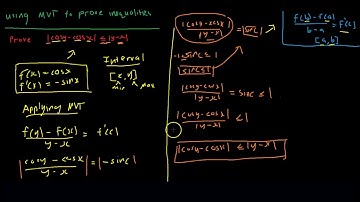 using MVT to prove inequalities
Prove |cosy-cosx| ≤ |y-x|
f(x) = cosx
f'(x) = -sinx
Interval
[x, y]
min max
Applying MVT
f(y) - f(x) / y-x = f'(c)
|cosy - cosx / y-x| = |-sinc|
|cosy-cosx| / |y-x| = |sinc|
-1 ≤ sinc ≤ 1
|sinc| ≤ 1
|cosy-cosx| / |y-x| = sinc ≤ 1
|cosy-cosx| / |y-x| ≤ 1
|cosy-cosx| ≤ |y-x|
f(b) - f(a) / b-a = f'(c)
[a, b]